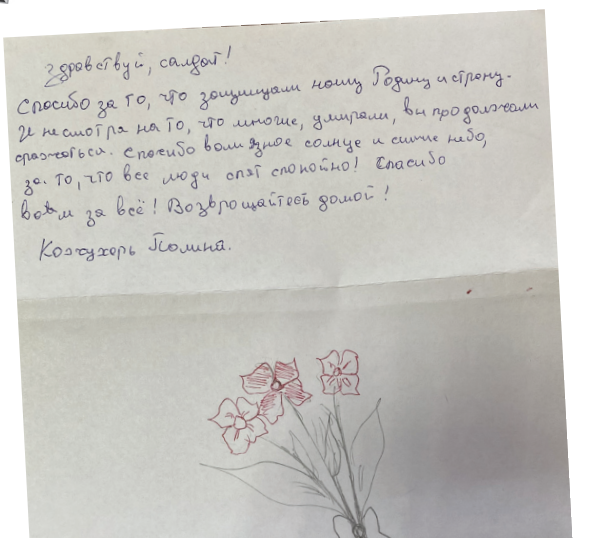 Здравствуй, салдат!
Спосибо за то, что защищали нашу Родину и страну.
И несмотря на то, что многие, умирали, вы продолжали
сражаться. Спосибо вам за ясное солнце и синие небо,
за то, что все люди спят спокойно! Спасибо
вам за всё! Возвращайтесь домой!
Кожухарь Полина.